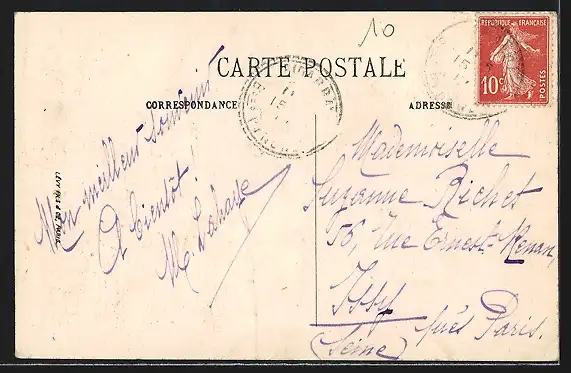 10
CARTE POSTALE
CORRESPONDANCE
ADRESSE
RÉPUBLIQUE FRANÇAISE
10c
POSTES
Mon meilleur souvenir
A bientôt!
M. Lahaye
Mademoiselle
Suzanne Richet
75, Rue Ernest-Renan,
Issy près Paris.
(Seine)